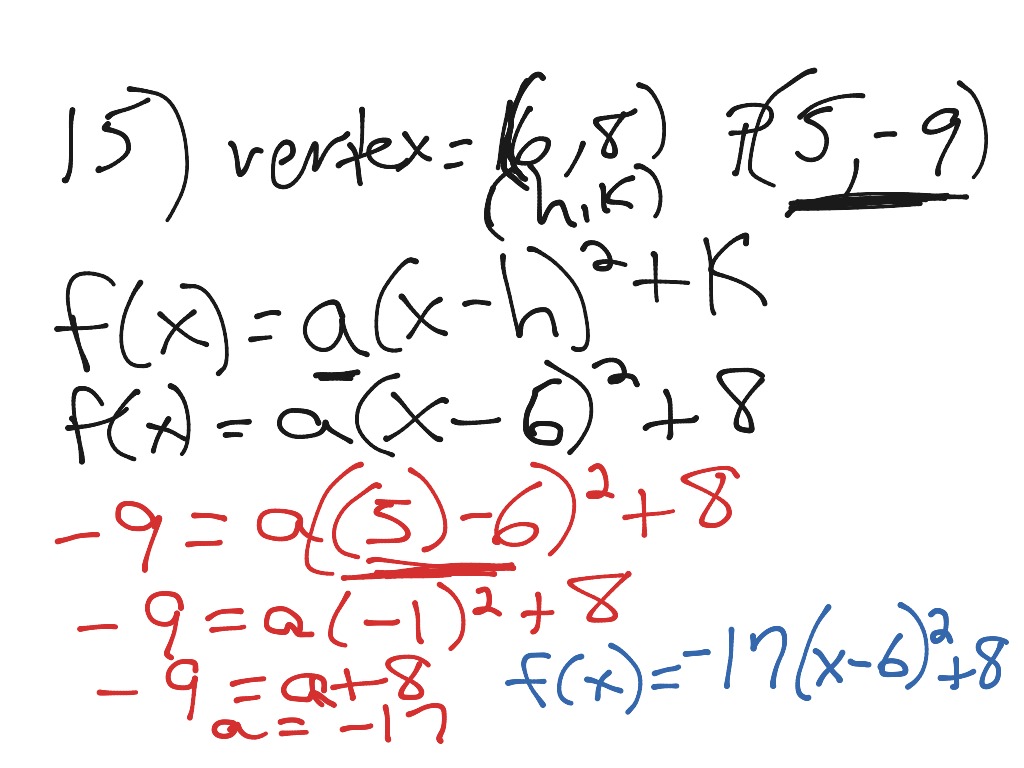 15) vertex = (6,8) P(5,-9)
(h,k)
f(x) = a(x-h)²+K
f(x) = a(x-6)²+8
-9 = a((5)-6)²+8
-9 = a(-1)²+8
-9 = a+8
a = -17
f(x) = -17(x-6)²+8